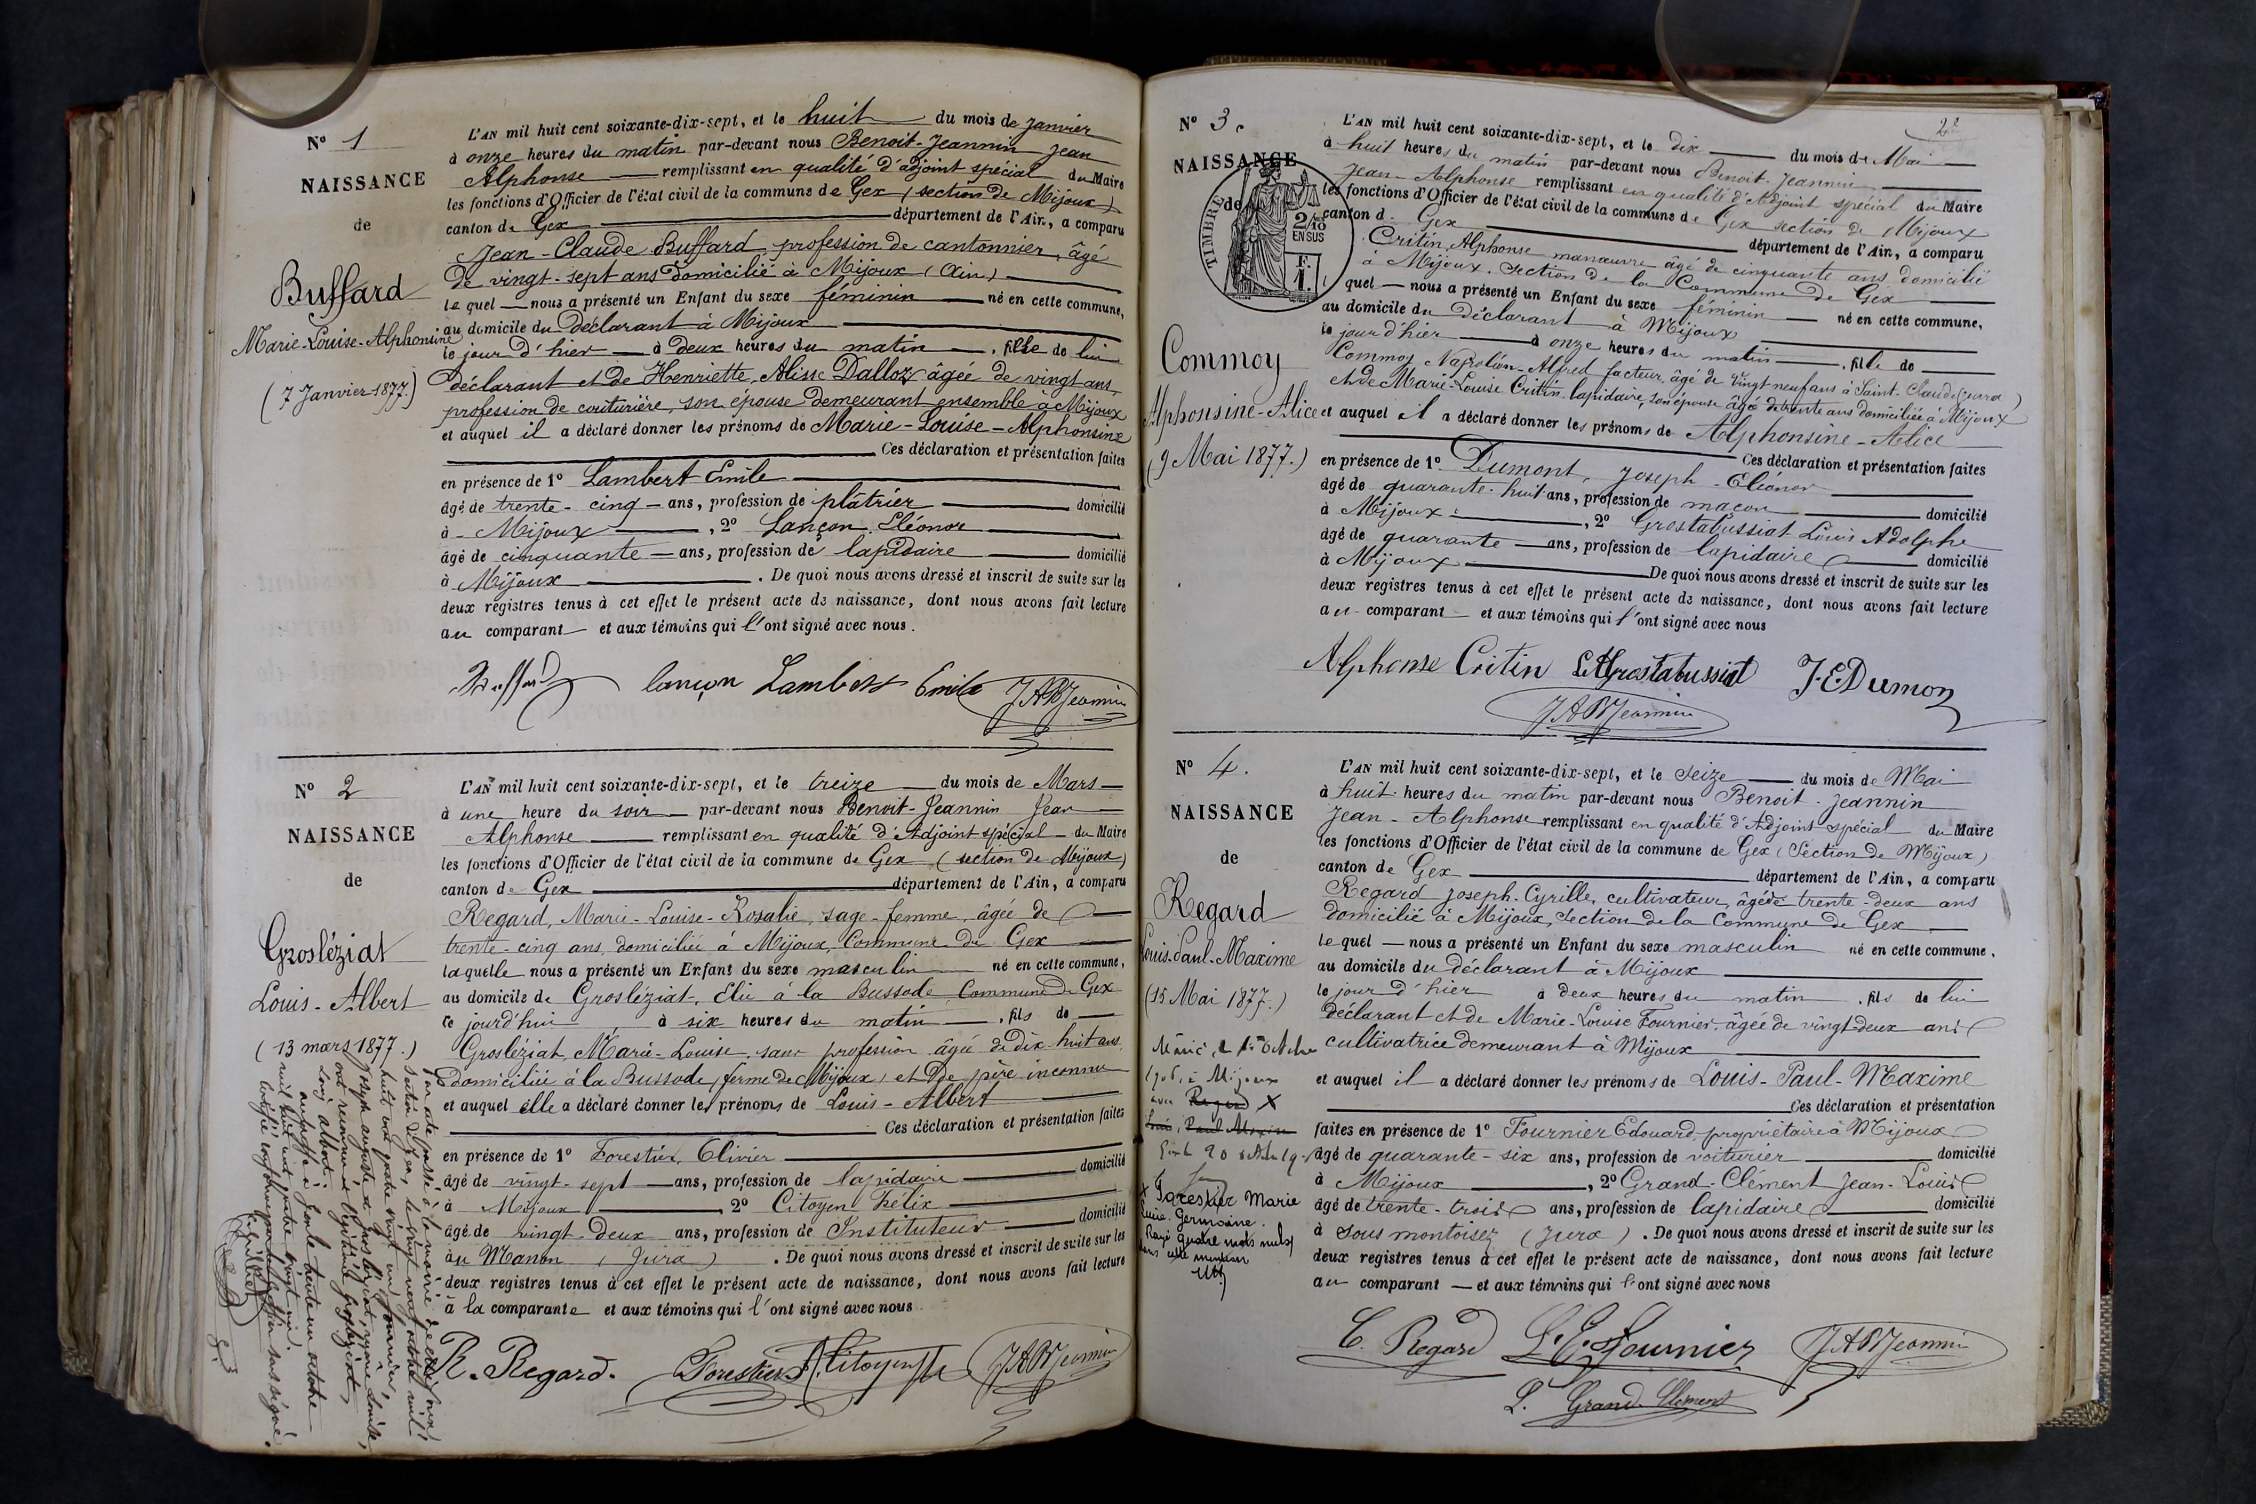 N° 1
NAISSANCE
de
Buffard
Marie-Louise-Alphonsine
(7 Janvier 1877.)
L'AN mil huit cent soixante-dix-sept, et le huit du mois de Janvier
à onze heures du matin par-devant nous Benoit-Jeannin Jean
Alphonse remplissant en qualité d'adjoint spécial du Maire
les fonctions d'Officier de l'état civil de la commune de Gex (section de Mijoux)
canton de Gex département de l'Ain, a comparu
Jean-Claude Buffard, profession de cantonnier, âgé
de vingt-sept ans domicilié à Mijoux (Ain)
le quel nous a présenté un Enfant du sexe féminin né en cette commune,
au domicile du Déclarant à Mijoux
le jour d'hier à deux heures du matin, fille de lui
déclarant et de Henriette Alisse Dalloz âgée de vingt ans,
profession de couturière, son épouse demeurant ensemble à Mijoux
et auquel il a déclaré donner les prénoms de Marie-Louise-Alphonsine
Ces déclaration et présentation faites
en présence de 1° Lambert Emile
âgé de trente-cinq ans, profession de plâtrier domicilié
à Mijoux, 2° Lançon Eléonor
âgé de cinquante ans, profession de lapidaire domicilié
à Mijoux. De quoi nous avons dressé et inscrit de suite sur les
deux registres tenus à cet effet le présent acte de naissance, dont nous avons fait lecture
au comparant et aux témoins qui l'ont signé avec nous.
Buffard lançon Lambert Emile JABJeannin
N° 2
NAISSANCE
de
Grosléziat
Louis-Albert
(13 mars 1877.)
L'AN mil huit cent soixante-dix-sept, et le treize du mois de Mars
à une heure du soir par-devant nous Benoit-Jeannin Jean
Alphonse remplissant en qualité d'Adjoint spécial du Maire
les fonctions d'Officier de l'état civil de la commune de Gex (section de Mijoux)
canton de Gex département de l'Ain, a comparu
Regard, Marie-Louise-Rosalie, sage-femme, âgée de
trente-cinq ans, domiciliée à Mijoux, Commune de Gex
laquelle nous a présenté un Enfant du sexe masculin né en cette commune,
au domicile de Grosléziat, Elie à la Bussode, Commune de Gex
ce jourd'hui, à six heures du matin, fils de
Grosléziat, Marie-Louise, sans profession âgée de Dix-huit ans,
domiciliée à la Bussode, (ferme de Mijoux) et De père inconnu
et auquel elle a déclaré donner les prénoms de Louis-Albert
Ces déclaration et présentation faites
en présence de 1° Forestier, Olivier
âgé de vingt-sept ans, profession de lapidaire domicilié
à Mijoux, 2° Citoyen Félix
âgé de vingt-deux ans, profession de Instituteur domicilié
au Manon (Jura). De quoi nous avons dressé et inscrit de suite sur les
deux registres tenus à cet effet le présent acte de naissance, dont nous avons fait lecture
à la comparante et aux témoins qui l'ont signé avec nous
R. Regard. Forestier Citoyen JABJeannin
N° 3.
NAISSANCE
de
TIMBRE
2/10
EN SUS
F.
1.
Commoy
Alphonsine-Alice
(9 Mai 1877.)
L'AN mil huit cent soixante-dix-sept, et le Dix du mois de Mai
à huit heures du matin par-devant nous Benoit-Jeannin
Jean-Alphonse remplissant en qualité d'Adjoint spécial du Maire
les fonctions d'Officier de l'état civil de la commune de Gex section de Mijoux
canton de Gex département de l'Ain, a comparu
Critin, Alphonse manœuvre âgé de cinquante ans domicilié
à Mijoux. Section de la Commune de Gex
lequel nous a présenté un Enfant du sexe féminin né en cette commune,
au domicile du Déclarant à Mijoux
le jour d'hier à onze heures du matin, fille de
Commoy Napoléon-Alfred facteur, âgé de vingt neuf ans à Saint-Claude (Jura)
et de Marie-Louise Critin lapidaire, son épouse âgée de trente ans domiciliée à Mijoux
et auquel il a déclaré donner les prénoms de Alphonsine-Alice
Ces déclaration et présentation faites
en présence de 1° Dumont, Joseph-Eléonor
âgé de quarante-huit ans, profession de maçon domicilié
à Mijoux, 2° Grostabussiat Louis Adolphe
âgé de quarante ans, profession de lapidaire domicilié
à Mijoux De quoi nous avons dressé et inscrit de suite sur les
deux registres tenus à cet effet le présent acte de naissance, dont nous avons fait lecture
au comparant et aux témoins qui l'ont signé avec nous
Alphonse Critin LAGrostabussiat J.E Dumon
JABJeannin
N° 4.
NAISSANCE
de
Regard
Louis-Paul-Maxime
(15 Mai 1877.)
Forestier Marie
Germaine.
Rayé quatre mots nuls
L'AN mil huit cent soixante-dix-sept, et le Seize du mois de Mai
à huit heures du matin par-devant nous Benoit-Jeannin
Jean-Alphonse remplissant en qualité d'Adjoint spécial du Maire
les fonctions d'Officier de l'état civil de la commune de Gex (Section de Mijoux)
canton de Gex département de l'Ain, a comparu
Regard Joseph-Cyrille, cultivateur, âgé de trente-deux ans
domicilié à Mijoux, Section de la Commune de Gex
le quel nous a présenté un Enfant du sexe masculin né en cette commune,
au domicile du déclarant à Mijoux
le jour d'hier à deux heures du matin, fils de lui
déclarant et de Marie-Louise Fournier, âgée de vingt-deux ans
cultivatrice demeurant à Mijoux
et auquel il a déclaré donner les prénoms de Louis-Paul-Maxime
Ces déclaration et présentation
faites en présence de 1° Fournier Edouard, propriétaire à Mijoux
âgé de quarante-six ans, profession de voiturier domicilié
à Mijoux, 2° Grand-Clément Jean-Louis
âgé de trente-trois ans, profession de lapidaire domicilié
à Sous montoisez (Jura). De quoi nous avons dressé et inscrit de suite sur les
deux registres tenus à cet effet le présent acte de naissance, dont nous avons fait lecture
au comparant et aux témoins qui l'ont signé avec nous
C. Regard L.E. Fournier JABJeannin
L. Grand-Clément